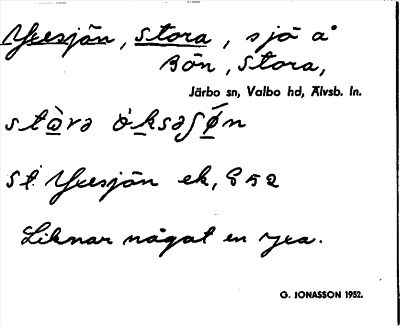 Yxesjön, stora, sjö å
Bön, Stora,
Järbo sn, Valbo hd, Älvsb. ln.
st. Yxesjön ek, 852
Liknar något en yxa.
G. JONASSON 1952.